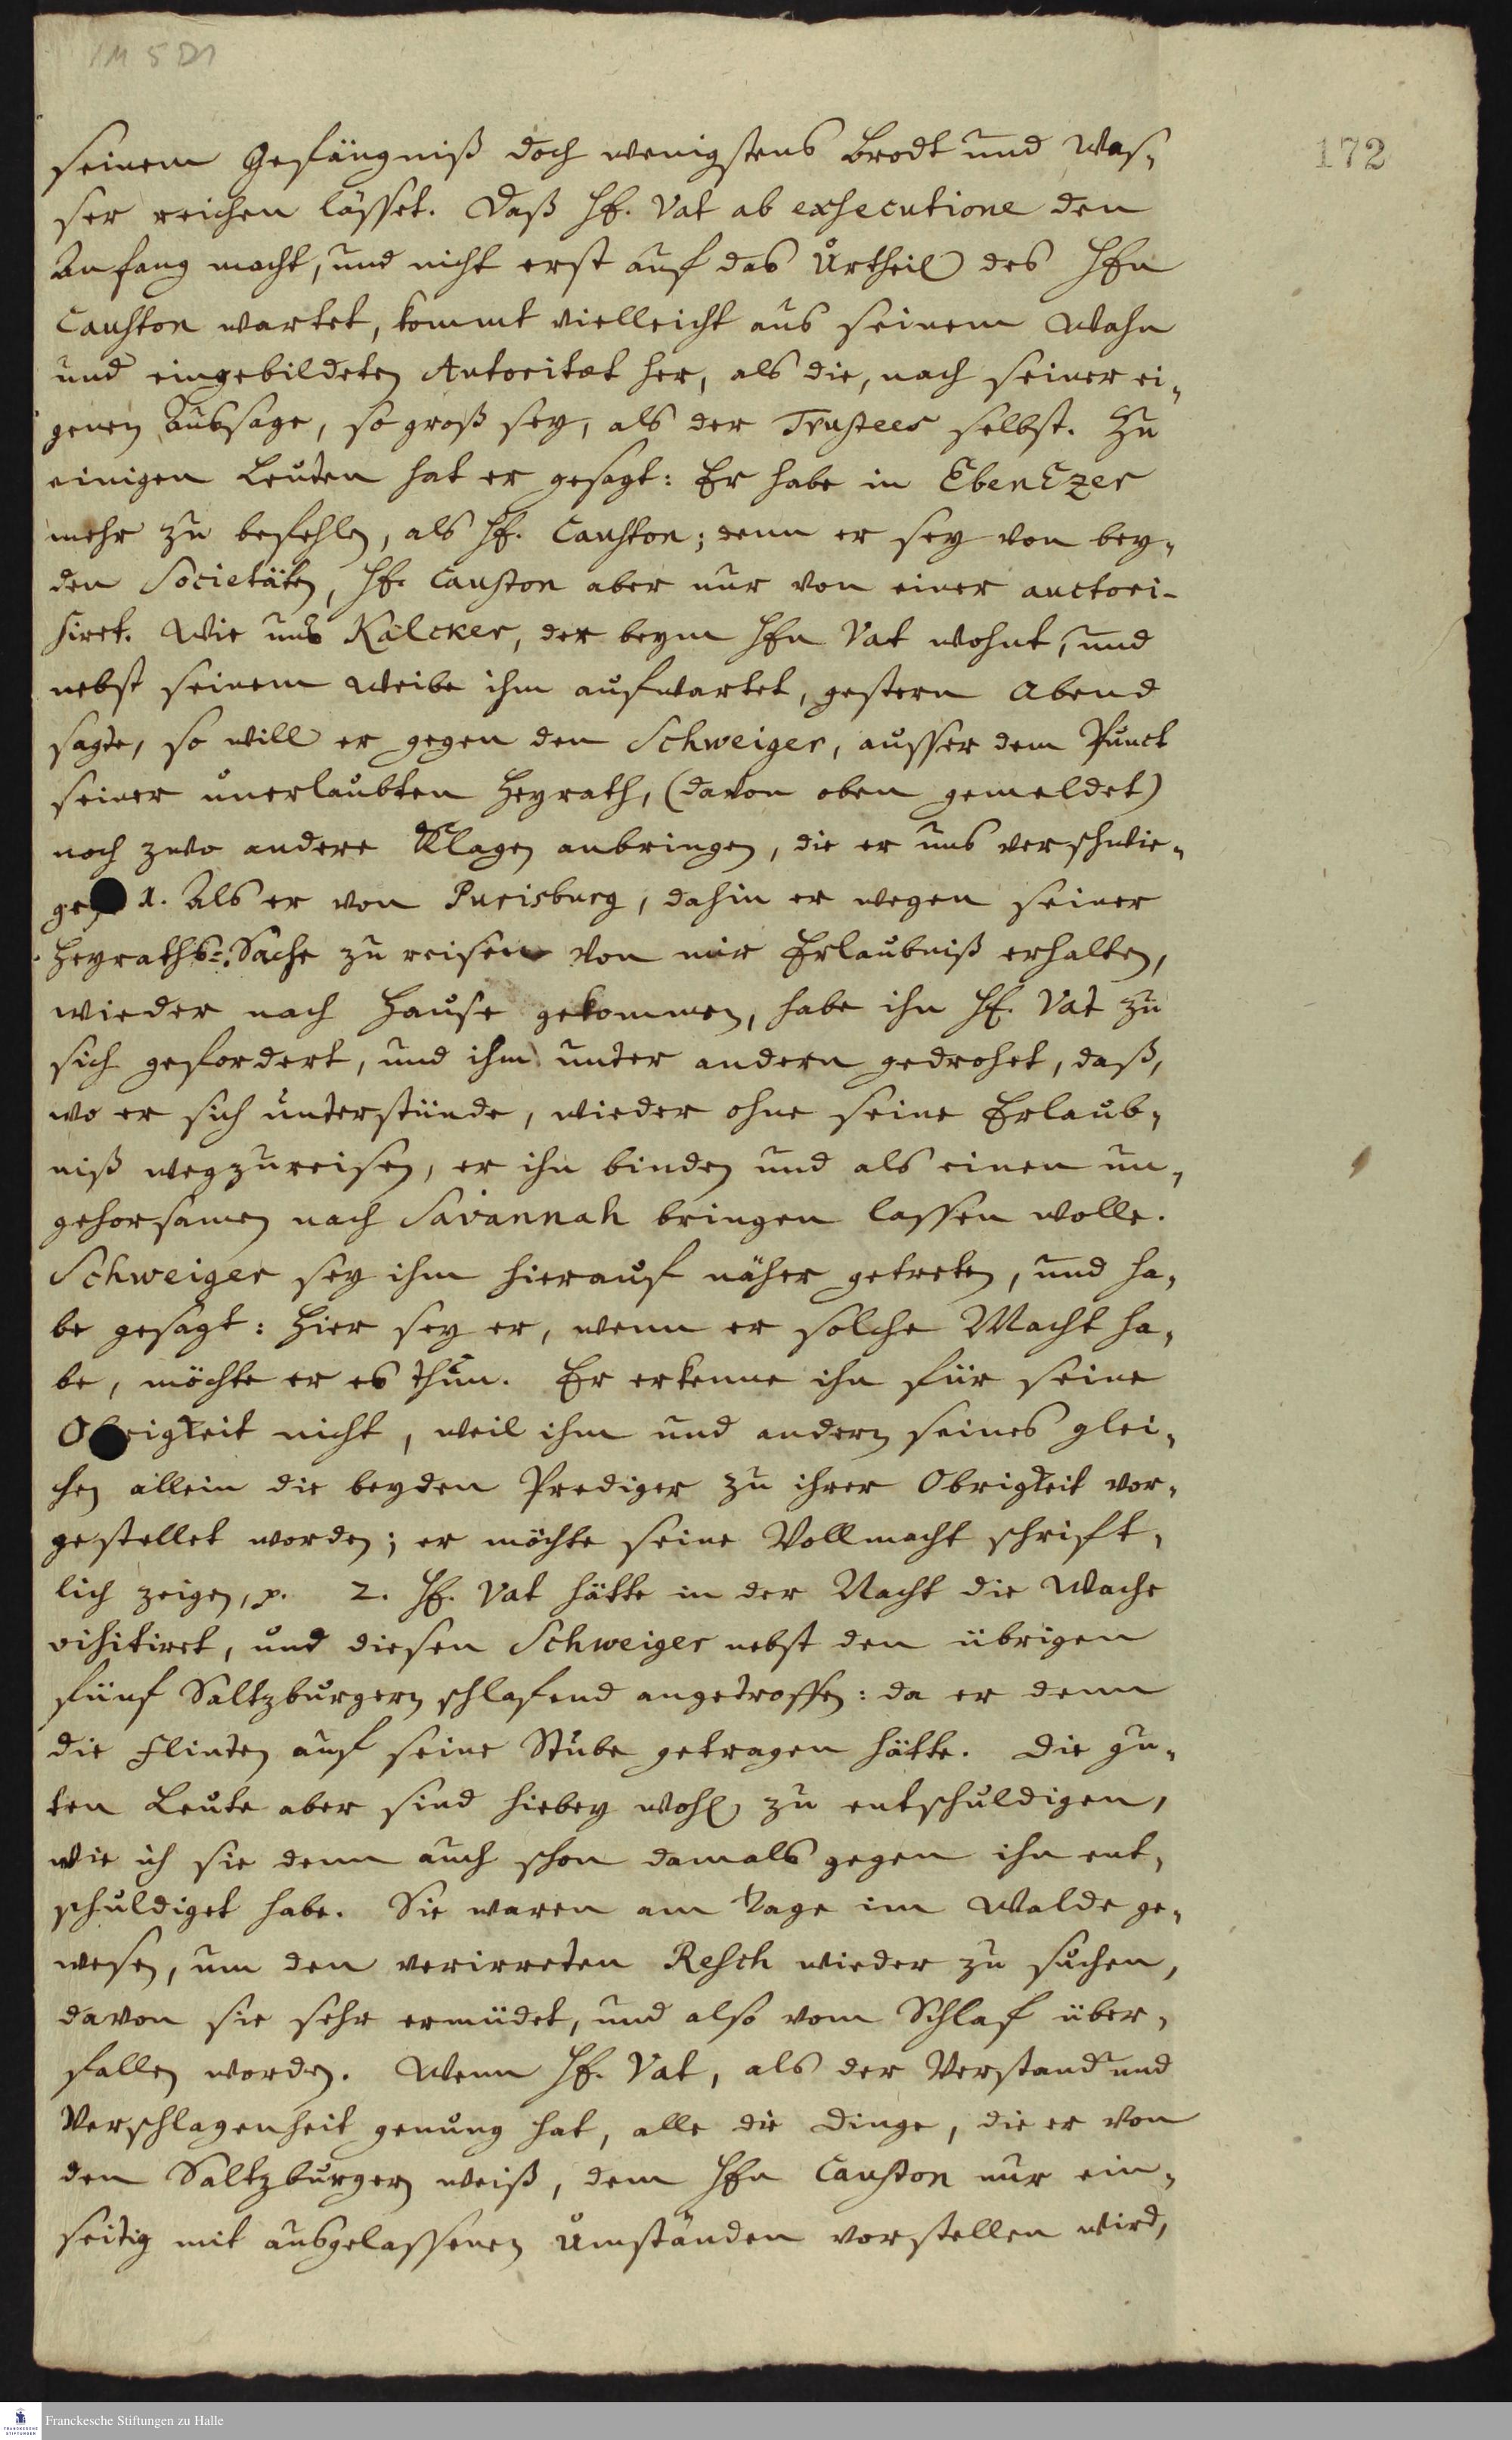 1M 5 D1
172
seinem Gefängniß doch wenigstens Brodt und Was-
ser reichen lässet. Daß Hr. Vat ab exsecutione den
Anfang macht, und nicht erst auf das Urtheil des Hrn
Causton wartet, kommt vielleicht aus seinem Wahn
und eingebildeten Autoritæt her, als die, nach seiner ei-
genen Aussage, so groß sey, als der Trustees selbst. Zu
einigen Leuten hat er gesagt: Er habe in EbenEzer
mehr zu befehlen, als Hr. Causton; denn er sey von bey-
den Societäten, Hr. Causton aber nur von einer auctori-
siret. Wie uns Kalcker, der beym Hrn Vat wohnt, und
nebst seinem Weibe ihm aufwartet, gestern Abend
sagte, so will er gegen den Schweiger, ausser dem Punct
seiner unerlaubten Heyrath, (davon oben gemeldet)
noch zwo andere Klagen anbringen, die er uns verschwie-
gen 1. Als er von Purisburg, dahin er wegen seiner
Heyraths-Sache zu reisen von mir Erlaubniß erhalten,
wieder nach Hause gekommen, habe ihn Hr. Vat zu
sich gefordert, und ihm unter andern gedrohet, daß,
wo er sich unterstünde, wieder ohne seine Erlaub-
niß wegzureisen, er ihn binden und als einen un-
gehorsamen nach Savannah bringen lassen wolle.
Schweiger sey ihm hierauf näher getreten, und ha-
be gesagt: Hier sey er, wenn er solche Macht ha-
be, möchte er es thun. Er erkenne ihn für seine
Obrigkeit nicht, weil ihm und andern seines glei-
chen allein die beyden Prediger zu ihrer Obrigkeit vor-
gestellet worden; er möchte seine Vollmacht schrift-
lich zeigen, p. 2. Hr. Vat hätte in der Nacht die Wache
visitiret, und diesen Schweiger nebst den übrigen
fünf Saltzburgern schlafend angetroffen: da er denn
die Flinten auf seine Stube getragen hätte. Die gu-
ten Leute aber sind hiebey wohl zu entschuldigen,
wie ich sie denn auch schon damals gegen ihn ent-
schuldiget habe. Sie waren am Tage im Walde ge-
wesen, um den verirreten Resch wieder zu suchen,
davon sie sehr ermüdet, und also vom Schlaf über-
fallen worden. Wenn Hr. Vat, als der Verstand und
Verschlagenheit genung hat, alle die Dinge, die er von
den Saltzburgern weiß, dem Hrn Causton nur ein-
seitig mit ausgelassenen Umständen vorstellen wird,
Franckesche Stiftungen zu Halle